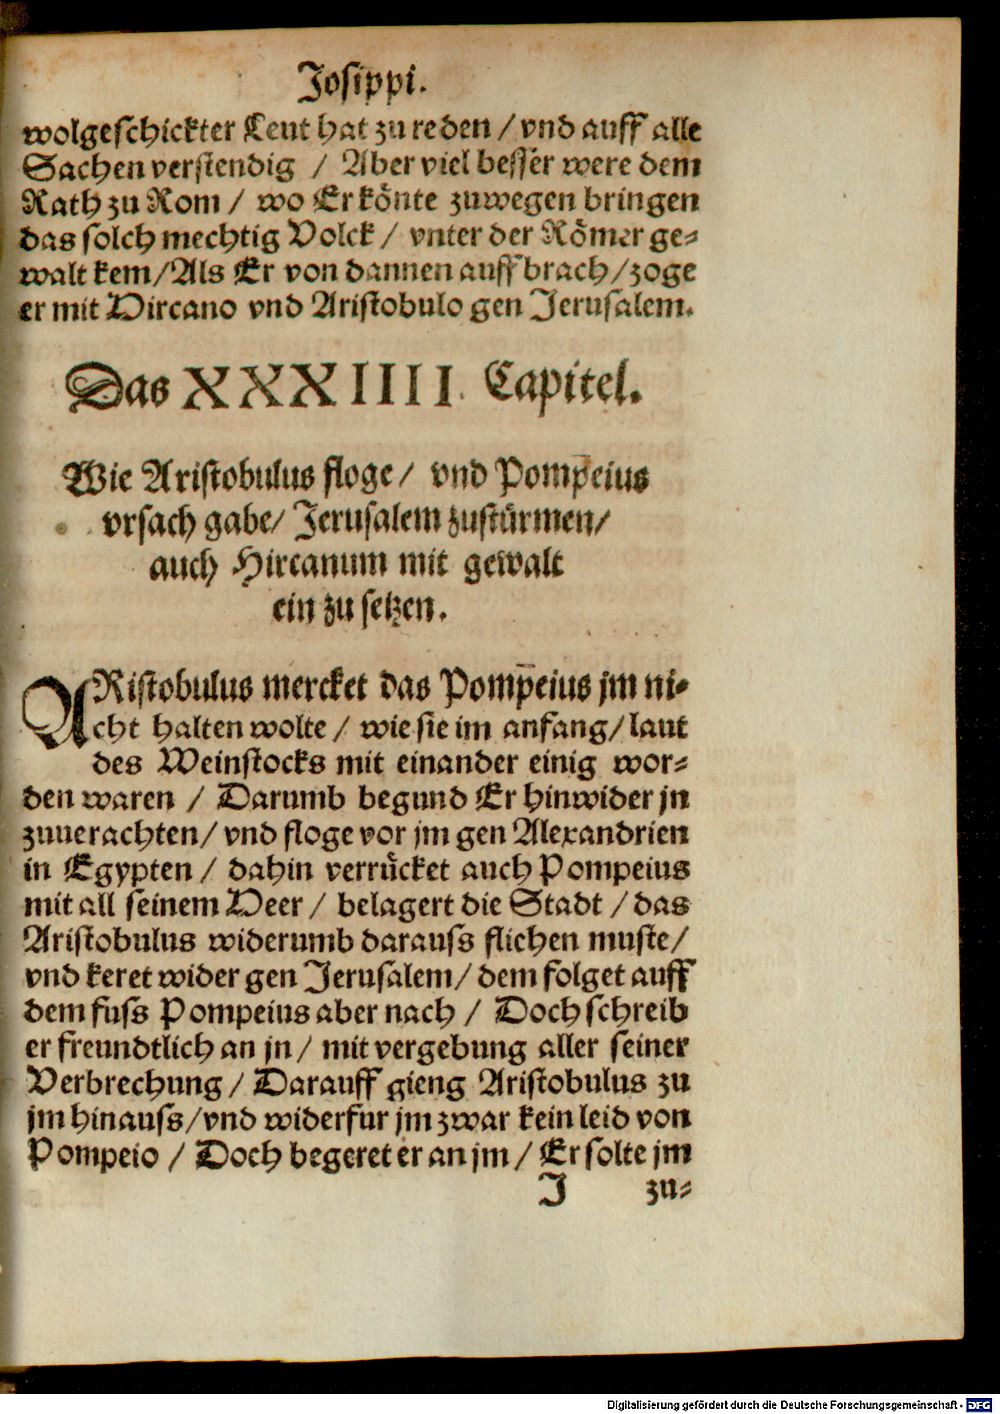 Josippi.
wolgeschickter Leut hat zu reden / vnd auff alle
Sachen verstendig / Aber viel besser were dem
Rath zu Rom / wo Er könte zuwegen bringen
das solch mechtig Volck / vnter der Römer ge-
walt kem / Als Er von dannen auffbrach / zoge
er mit Hircano vnd Aristobulo gen Jerusalem.
Das XXXIIII. Capitel.
Wie Aristobulus floge / vnd Pompeius
vrsach gabe / Jerusalem zustürmen /
auch Hircanum mit gewalt
ein zu setzen.
ARistobulus mercket das Pompeius jm ni-
cht halten wolte / wie sie im anfang / laut
des Weinstocks mit einander einig wor-
den waren / Darumb begund Er hinwider jn
zuuerachten / vnd floge vor jm gen Alexandrien
in Egypten / dahin verrücket auch Pompeius
mit all seinem Heer / belagert die Stadt / das
Aristobulus widerumb darauss fliehen muste /
vnd keret wider gen Jerusalem / dem folget auff
dem fuss Pompeius aber nach / Doch schreib
er freundtlich an jn / mit vergebung aller seiner
Verbrechung / Darauff gieng Aristobulus zu
jm hinauss / vnd widerfur jm zwar kein leid von
Pompeio / Doch begeret er an jm / Er solte jm
J zu-
Digitalisierung gefördert durch die Deutsche Forschungsgemeinschaft - DFG